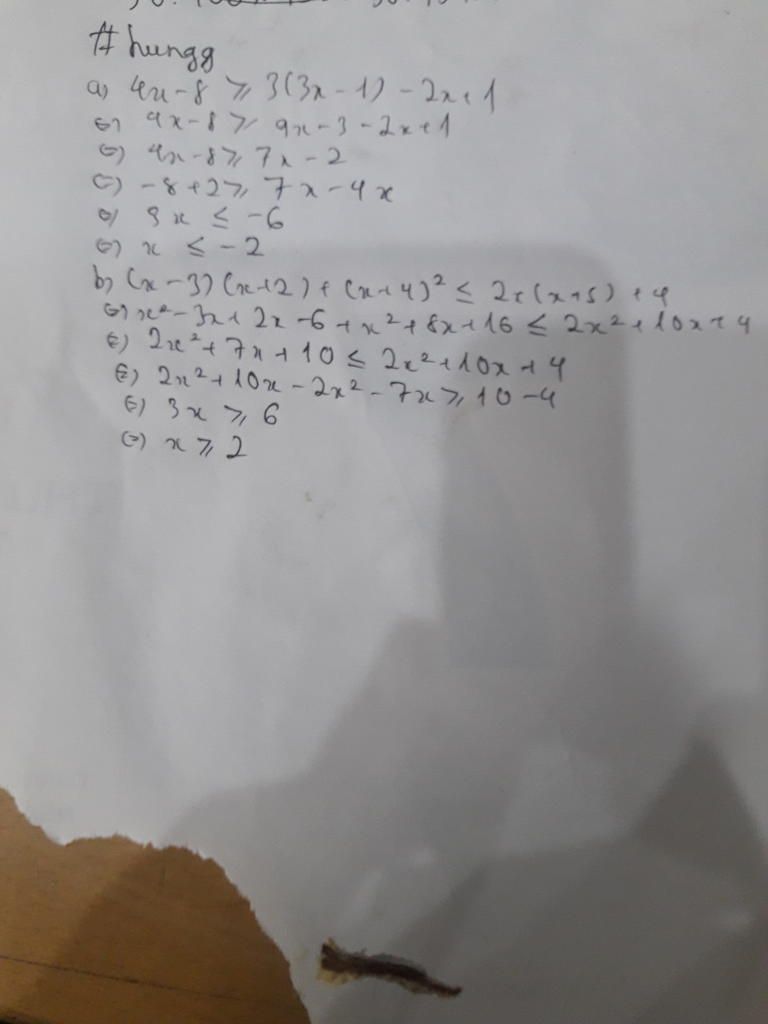 # hungg
a) 4x - 8 ⩾ 3(3x - 1) - 2x + 1
⇔) 4x - 8 ⩾ 9x - 3 - 2x + 1
⇔) 4x - 8 ⩾ 7x - 2
⇔) -8 + 2 ⩾ 7x - 4x
⇔) 3x ≤ -6
⇔) x ≤ -2
b) (x - 3)(x + 2) + (x + 4)² ≤ 2x(x + 5) + 4
⇔) x² - 3x + 2x - 6 + x² + 8x + 16 ≤ 2x² + 10x + 4
⇔) 2x² + 7x + 10 ≤ 2x² + 10x + 4
⇔) 2x² + 10x - 2x² - 7x ⩾ 10 - 4
⇔) 3x ⩾ 6
⇔) x ⩾ 2